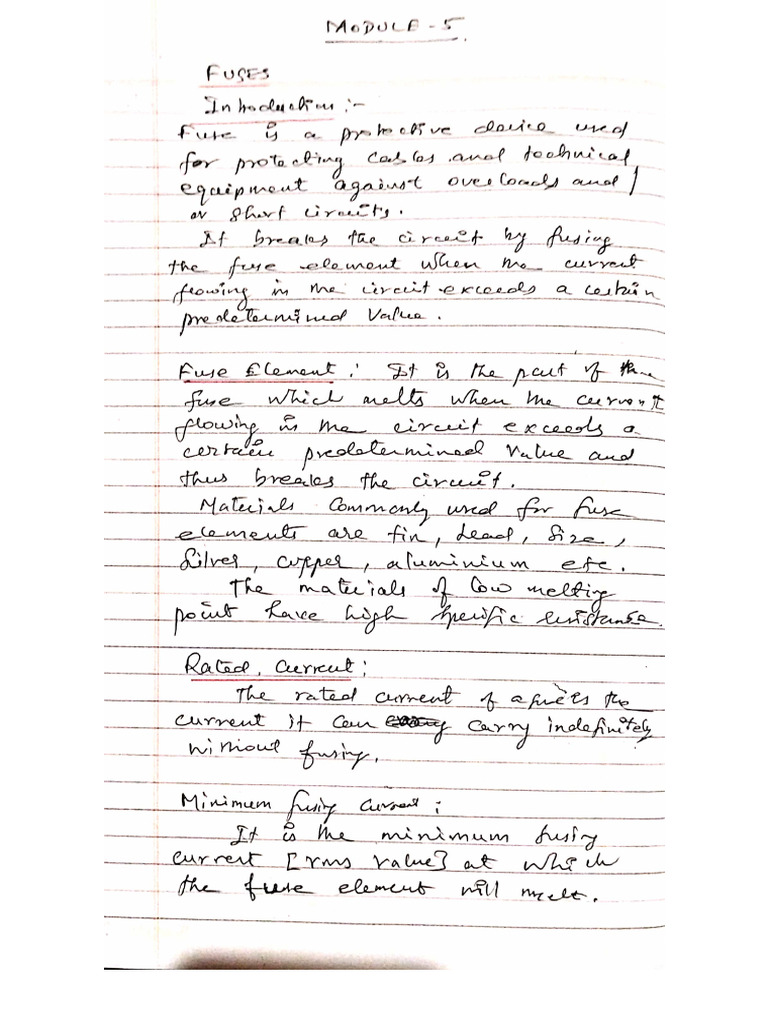 MODULE - 5
FUSES
Introduction :-
Fuse is a protective device used
for protecting cables and technical
equipment against overloads and /
or short circuits.
It breaks the circuit by fusing
the fuse element when the current
flowing in the circuit exceeds a certain
predetermined value.
Fuse Element : It is the part of the
fuse which melts when the current
flowing in the circuit exceeds a
certain predetermined value and
thus breaks the circuit.
Materials commonly used for fuse
elements are tin, lead,
silver, copper, aluminium etc.
The materials of low melting
point have high specific resistance.
Rated Current :
The rated current of a fuse is the
current it can carry indefinitely
without fusing.
Minimum fusing current :
It is the minimum fusing
current [rms value] at which
the fuse element will melt.